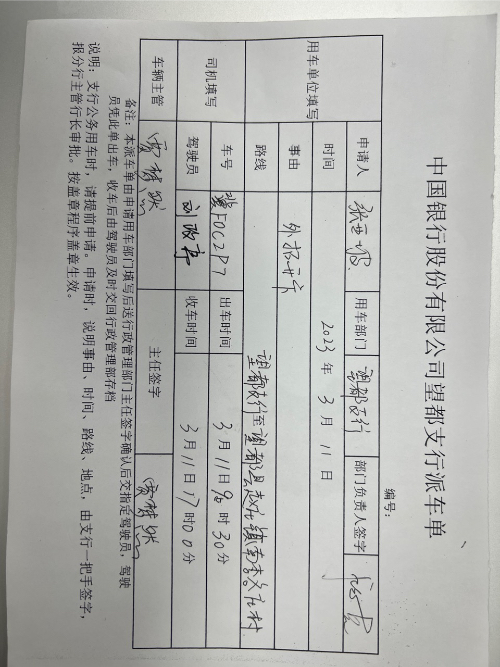 中国银行股份有限公司望都支行派车单
编号:
用车单位填写 申请人 用车部门 望都支行 部门负责人签字
时间 2023 年 3 月 11 日
事由 外拓开卡
路线 望都支行至望都县赵庄镇南李各庄村
司机填写 车号 冀F0C2P7 出车时间 3 月 11 日 9 时 30 分
驾驶员 收车时间 3 月 11 日 17 时 00 分
车辆主管 主任签字
备注:本派车单由申请用车部门填写后送行政管理部门主任签字确认后交指定驾驶员,驾驶
员凭此单出车,收车后由驾驶员及时交回行政管理部存档
说明:支行公务用车时,请提前申请。申请时,说明事由、时间、路线、地点,由支行一把手签字,
报分行主管行长审批。按盖章程序盖章生效。